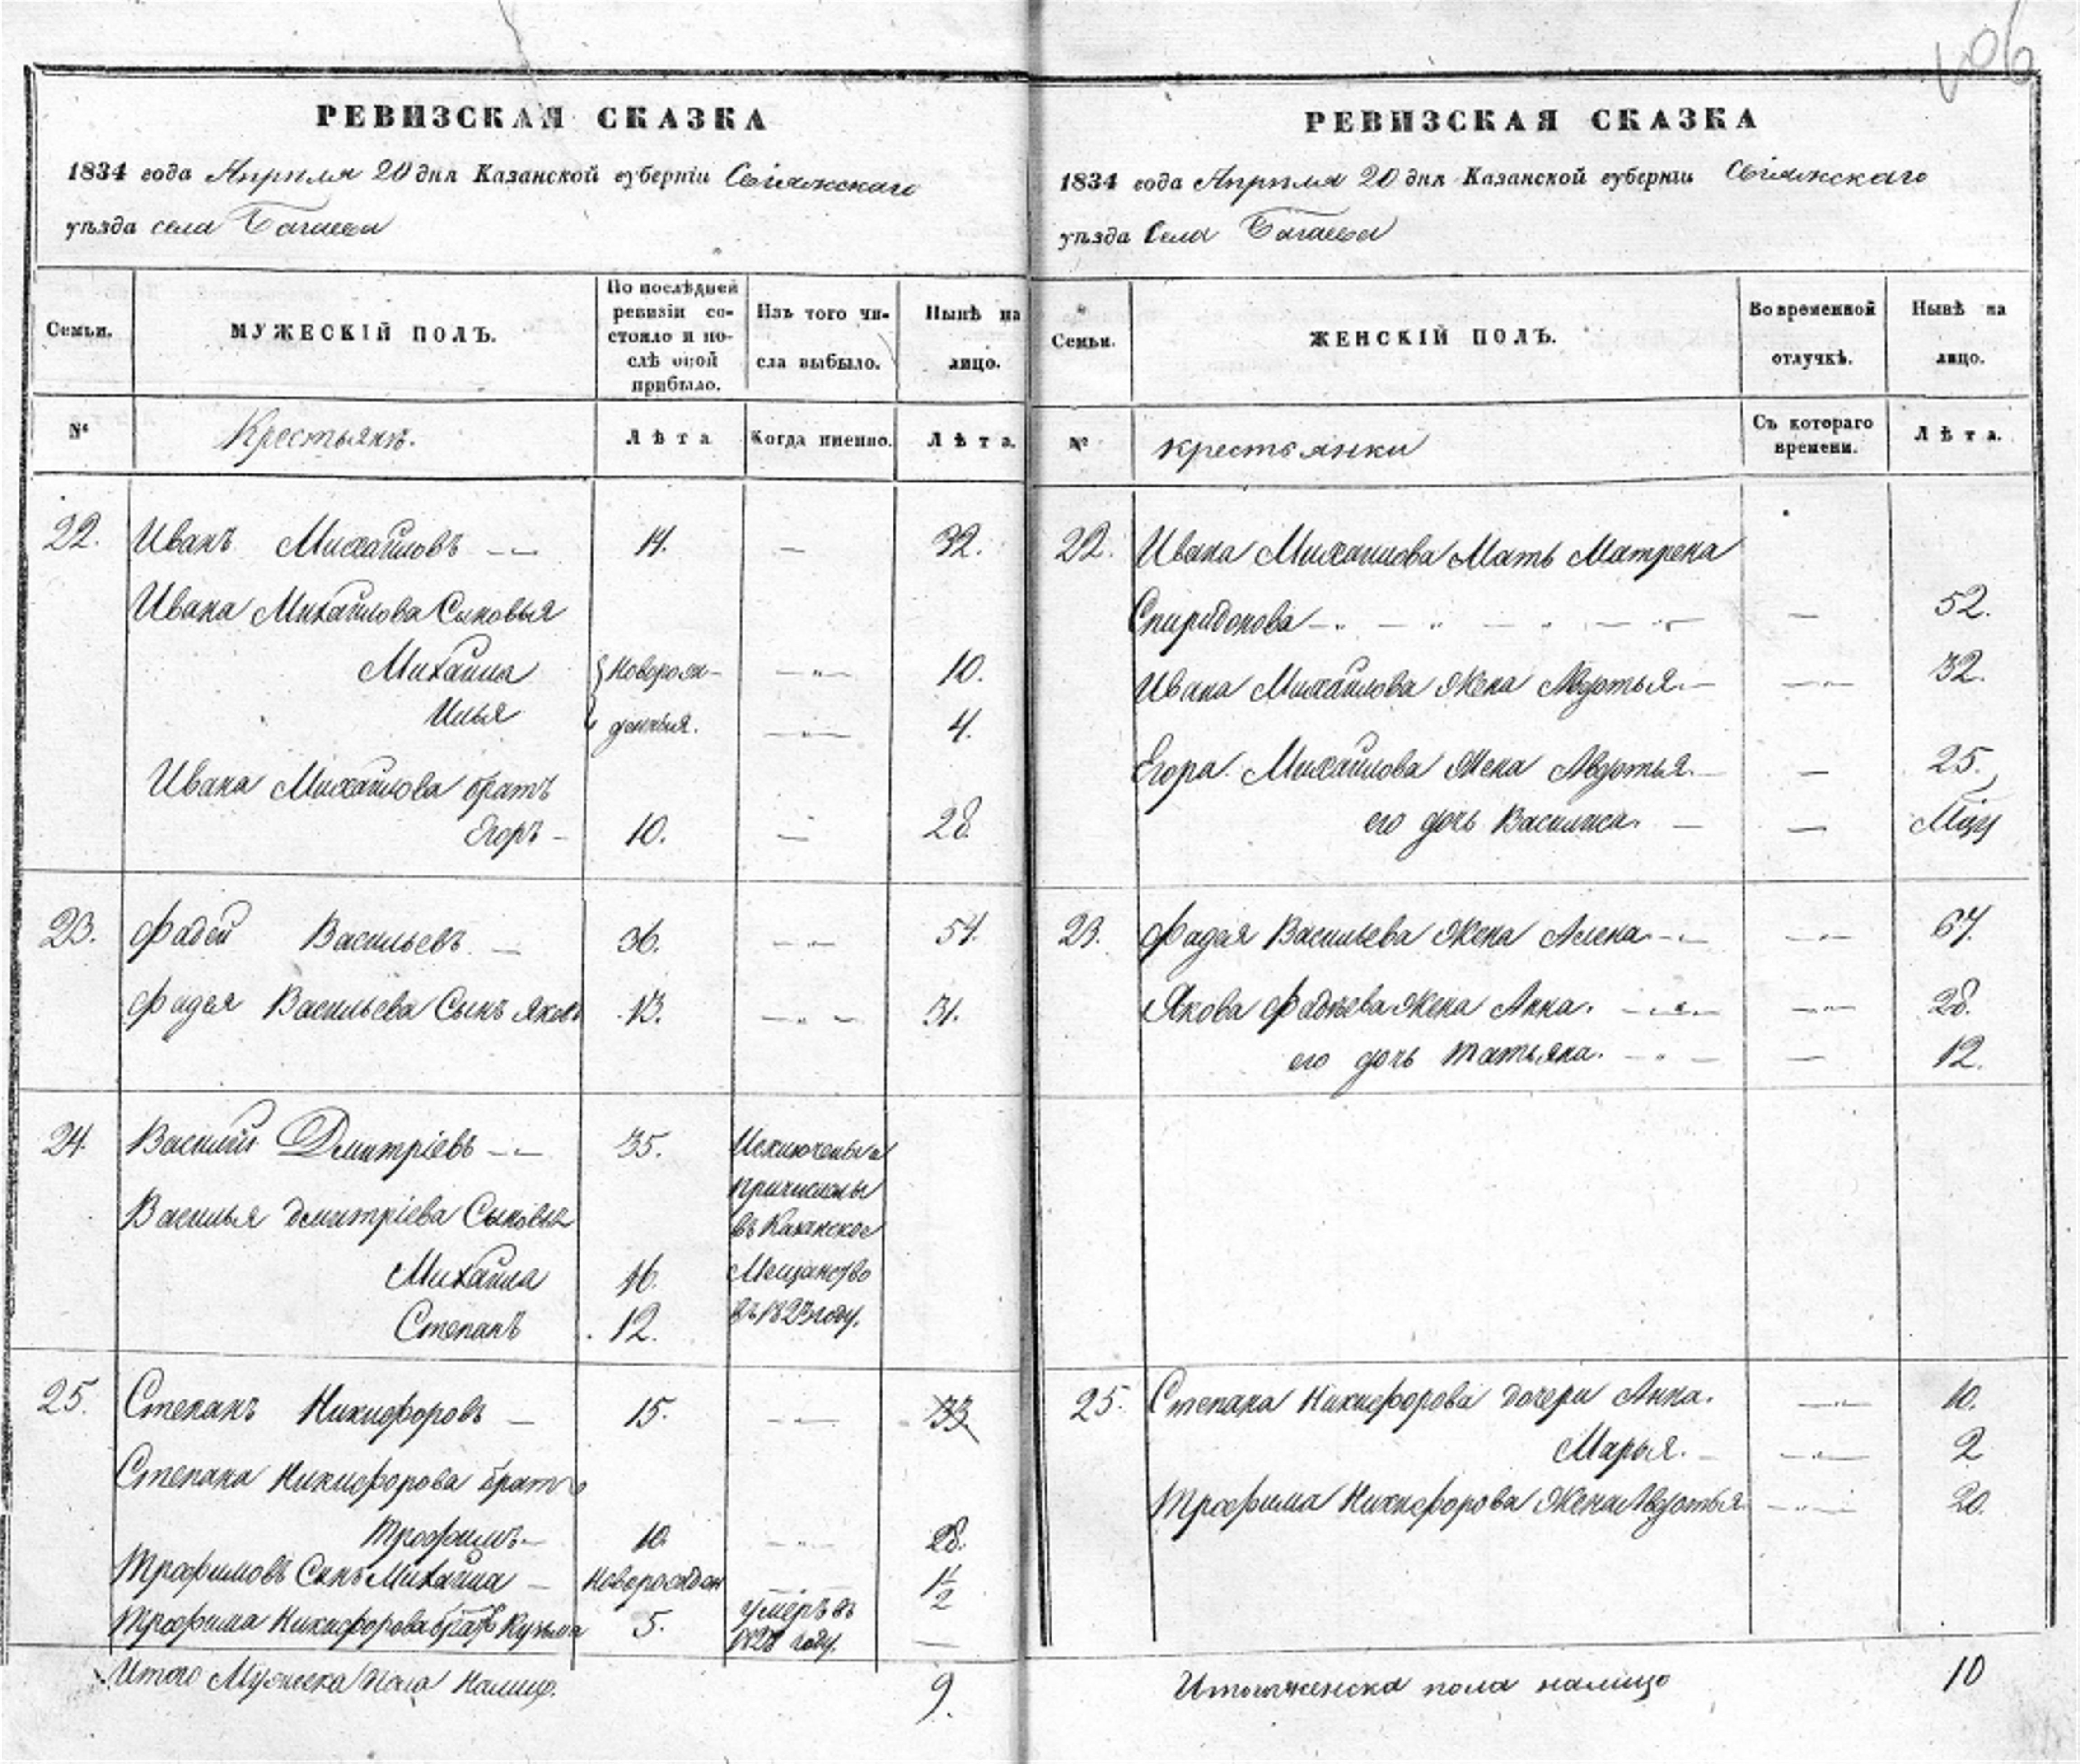 106
РЕВИЗСКАЯ СКАЗКА
1834 года Апрѣля 20 дня Казанской губерніи Свіяжскаго
уѣзда села Багаева
Семьи.
МУЖЕСКІЙ ПОЛЪ.
По послѣдней
ревизіи со-
стояло и по-
слѣ оной
прибыло.
Изъ того чи-
сла выбыло.
Нынѣ на
лицо.
№
Крестьянъ.
Лѣта
Когда именно.
Лѣта.
22. Иванъ Михайловъ 14. — 32.
Ивана Михайлова Сыновья
Михайла Новорож- — 10.
Илья денныя. — 4.
Ивана Михайлова братъ
Егоръ — 10. — 28.
23. Фадей Васильевъ — 36. — 54.
Фадея Васильева Сынъ Яковъ 13. — 31.
24. Василий Дмитріевъ 35. Исключены и
причислены
Василья Дмитріева Сыновья въ Казанское
Михайла 16. Мещанство
Степанъ 12. въ 1823 году.
25. Степанъ Никифоровъ — 15. — 33
Степана Никифорова братъ
Трофимъ — 10. — 28.
Трофимовъ Сынъ Михайла — Новорожден 1 1/2
Трофима Никифорова братъ Кузьма 5. умеръ въ
1828 году. —
Итого Мужеска пола налицо. 9.
РЕВИЗСКАЯ СКАЗКА
1834 года Апрѣля 20 дня Казанской губерніи Свіяжскаго
уѣзда Села Багаева
Семьи.
ЖЕНСКІЙ ПОЛЪ.
Во временной
отлучкѣ.
Нынѣ на
лицо.
№
крестьянки
Съ котораго
времени.
Лѣта.
22. Ивана Михайлова Мать Матрена
Спиридонова — 52.
Ивана Михайлова Жена Авдотья. — 32.
Егора Михайлова Жена Авдотья. — 25.
его дочь Василиса. —
23. Фадея Васильева Жена Алена — 67.
Якова Фадѣева Жена Анна. — 28.
его дочь Татьяна. — 12.
25. Степана Никифорова дочери Анна. — 10.
Марья. — 2
Трофима Никифорова Жена Авдотья — 20.
Итого женска пола налицо 10